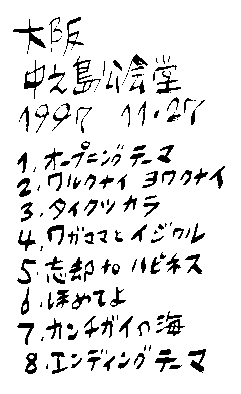 大阪
中之島公会堂
1997 11.27
1. オープニングテーマ
2. ワルクナイ ヨワクナイ
3. タイクツカラ
4. ワガママとイジワル
5. 忘却 to ハピネス
6. ほめてよ
7. カンチガイの海
8. エンディングテーマ